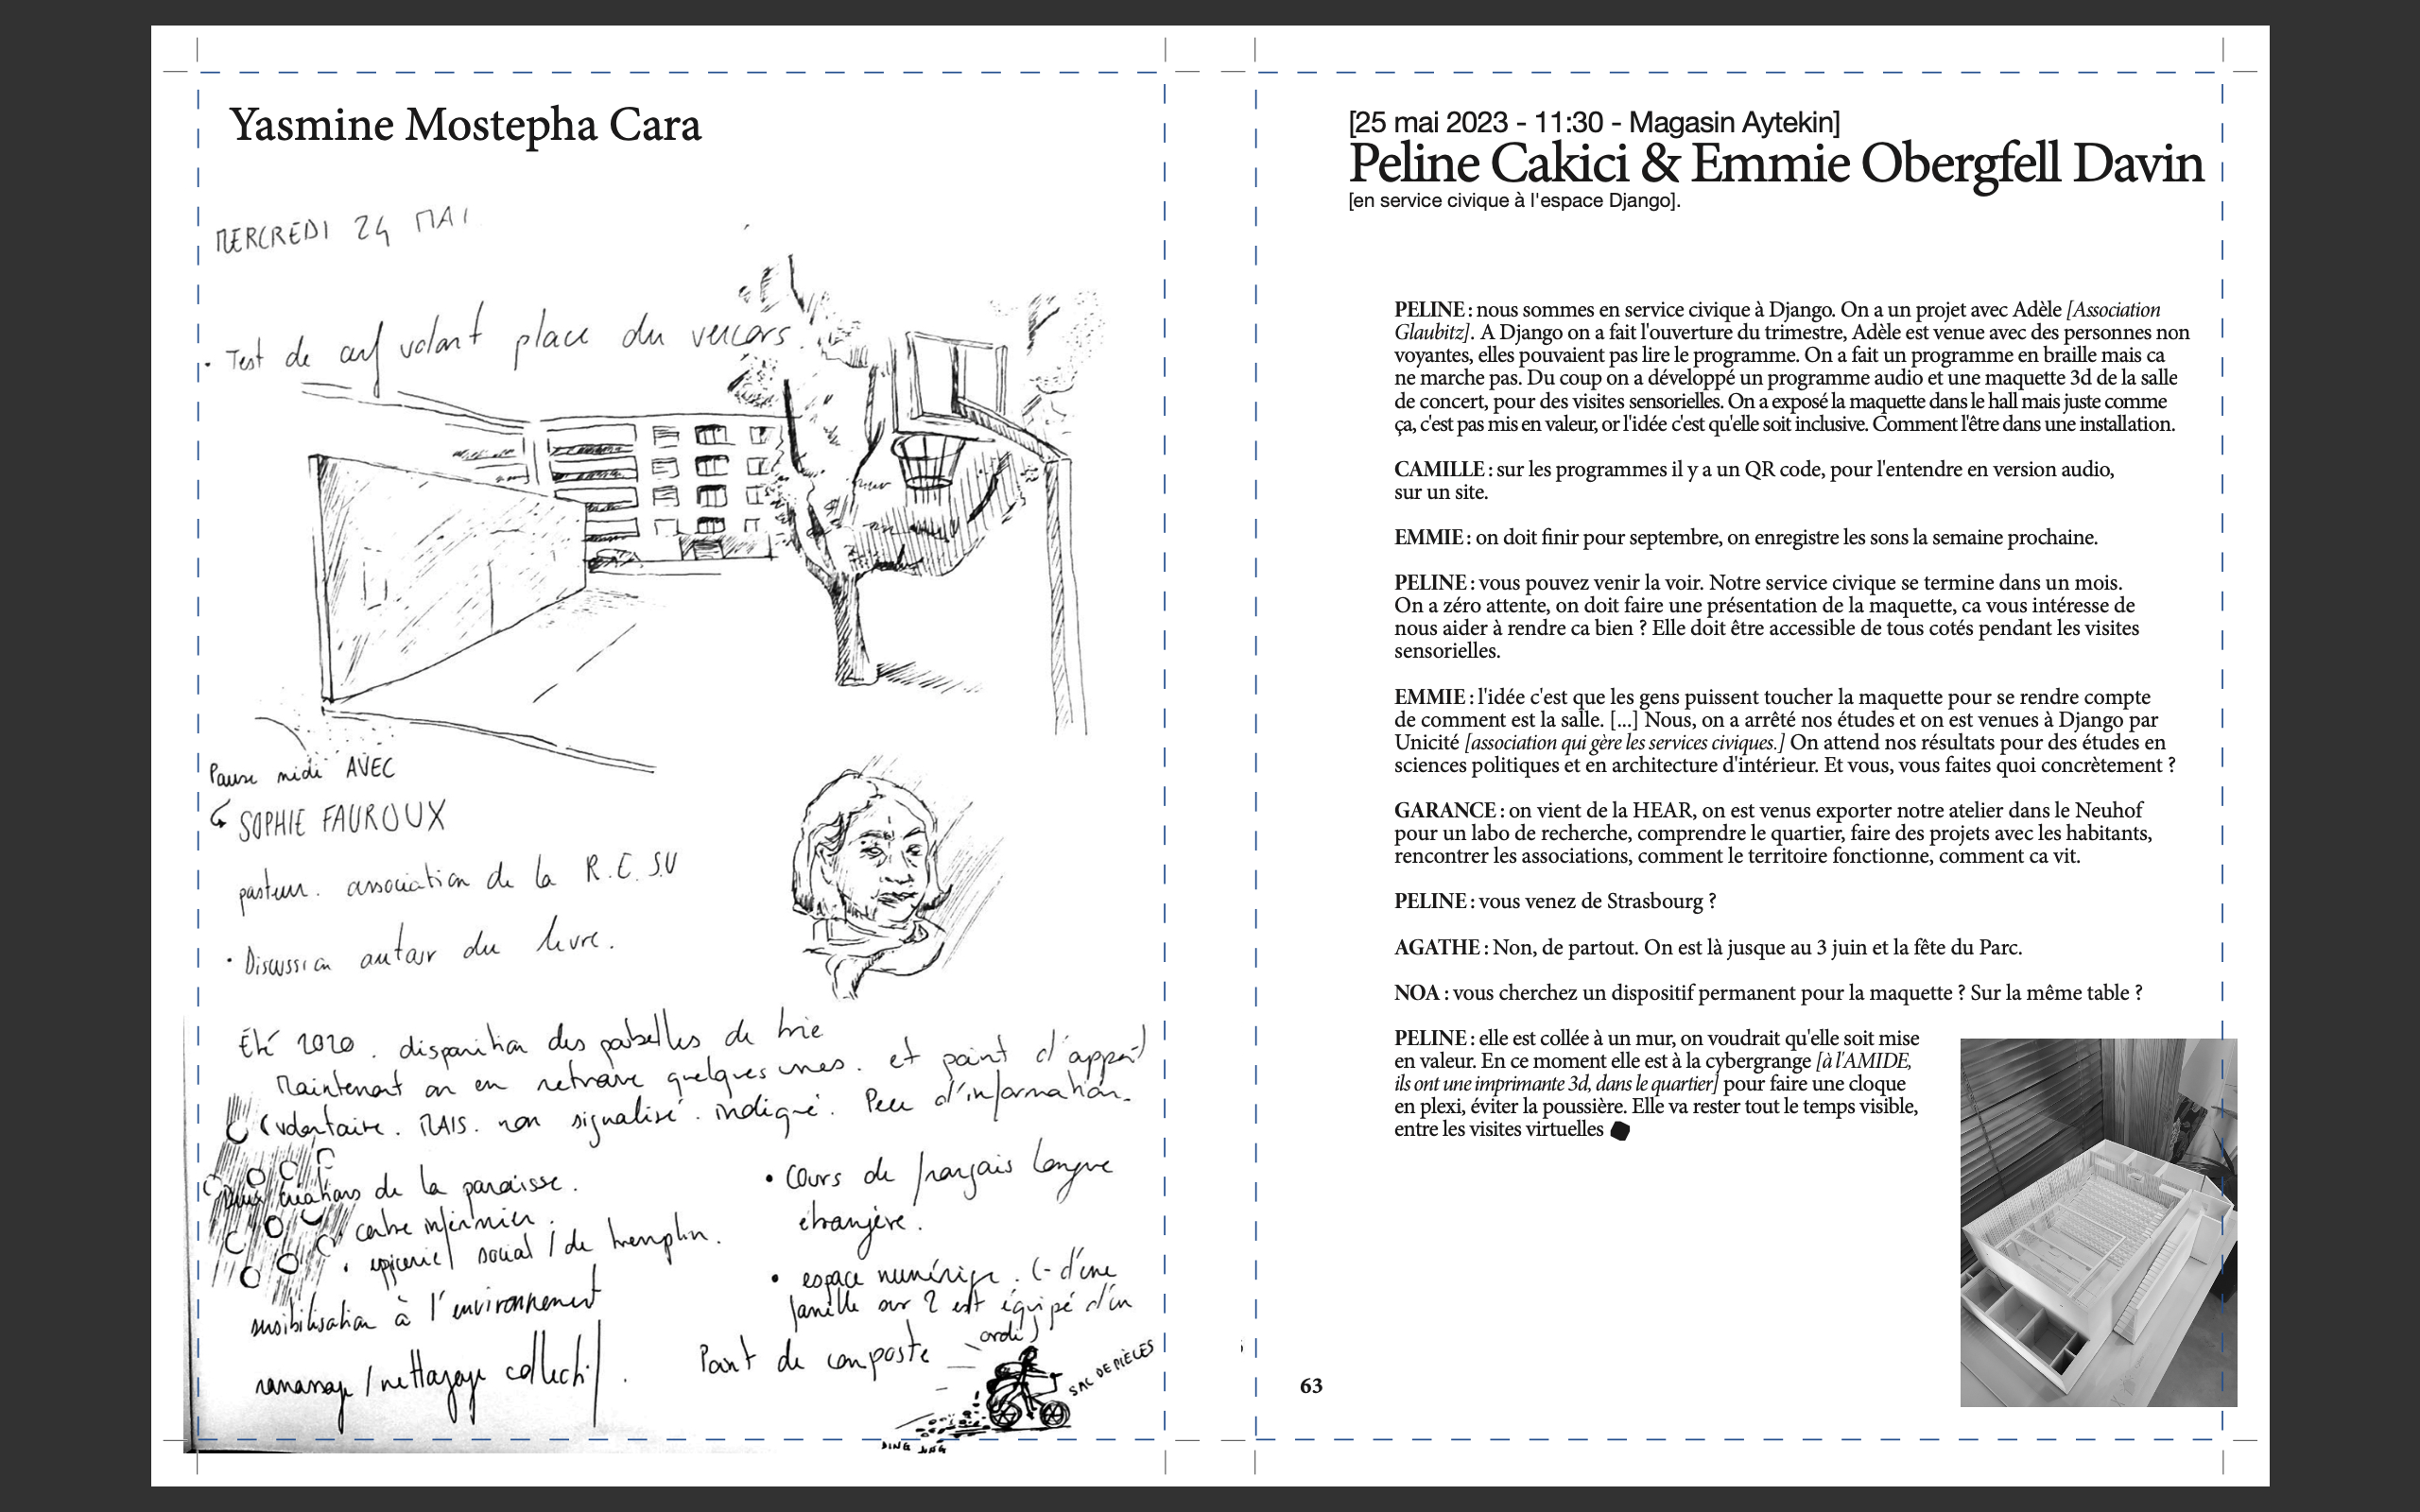 Yasmine Mostepha Cara
MERCREDI 24 MAI
. Test de cerf volant place du vercors.
Pause midi AVEC
SOPHIE FAUROUX
pasteur. association de la R.E.S.U
. Discussion autour du livre.
Été 2020. disparition des poubelles de trie
Maintenant on en retrouve quelques unes. et point d'apport
(volontaire. MAIS. non signalisé. indiqué. Peu d'information.
créations de la paroisse.
centre infirmier.
. epicerie social / de tremplin.
sensibilisation à l'environnement
ramassage / nettoyage collectif.
• Cours de français langue
étrangère.
• espace numérique. (- d'une
famille sur 2 est équipé d'un
ordi)
Point de composte
SAC DE PIÈCES
DING DING
[25 mai 2023 - 11:30 - Magasin Aytekin]
Peline Cakici & Emmie Obergfell Davin
[en service civique à l'espace Django].
PELINE : nous sommes en service civique à Django. On a un projet avec Adèle [Association
Glaubitz]. A Django on a fait l'ouverture du trimestre, Adèle est venue avec des personnes non
voyantes, elles pouvaient pas lire le programme. On a fait un programme en braille mais ca
ne marche pas. Du coup on a développé un programme audio et une maquette 3d de la salle
de concert, pour des visites sensorielles. On a exposé la maquette dans le hall mais juste comme
ça, c'est pas mis en valeur, or l'idée c'est qu'elle soit inclusive. Comment l'être dans une installation.
CAMILLE : sur les programmes il y a un QR code, pour l'entendre en version audio,
sur un site.
EMMIE : on doit finir pour septembre, on enregistre les sons la semaine prochaine.
PELINE : vous pouvez venir la voir. Notre service civique se termine dans un mois.
On a zéro attente, on doit faire une présentation de la maquette, ca vous intéresse de
nous aider à rendre ca bien ? Elle doit être accessible de tous cotés pendant les visites
sensorielles.
EMMIE : l'idée c'est que les gens puissent toucher la maquette pour se rendre compte
de comment est la salle. [...] Nous, on a arrêté nos études et on est venues à Django par
Unicité [association qui gère les services civiques.] On attend nos résultats pour des études en
sciences politiques et en architecture d'intérieur. Et vous, vous faites quoi concrètement ?
GARANCE : on vient de la HEAR, on est venus exporter notre atelier dans le Neuhof
pour un labo de recherche, comprendre le quartier, faire des projets avec les habitants,
rencontrer les associations, comment le territoire fonctionne, comment ca vit.
PELINE : vous venez de Strasbourg ?
AGATHE : Non, de partout. On est là jusque au 3 juin et la fête du Parc.
NOA : vous cherchez un dispositif permanent pour la maquette ? Sur la même table ?
PELINE : elle est collée à un mur, on voudrait qu'elle soit mise
en valeur. En ce moment elle est à la cybergrange [à l'AMIDE,
ils ont une imprimante 3d, dans le quartier] pour faire une cloque
en plexi, éviter la poussière. Elle va rester tout le temps visible,
entre les visites virtuelles
63